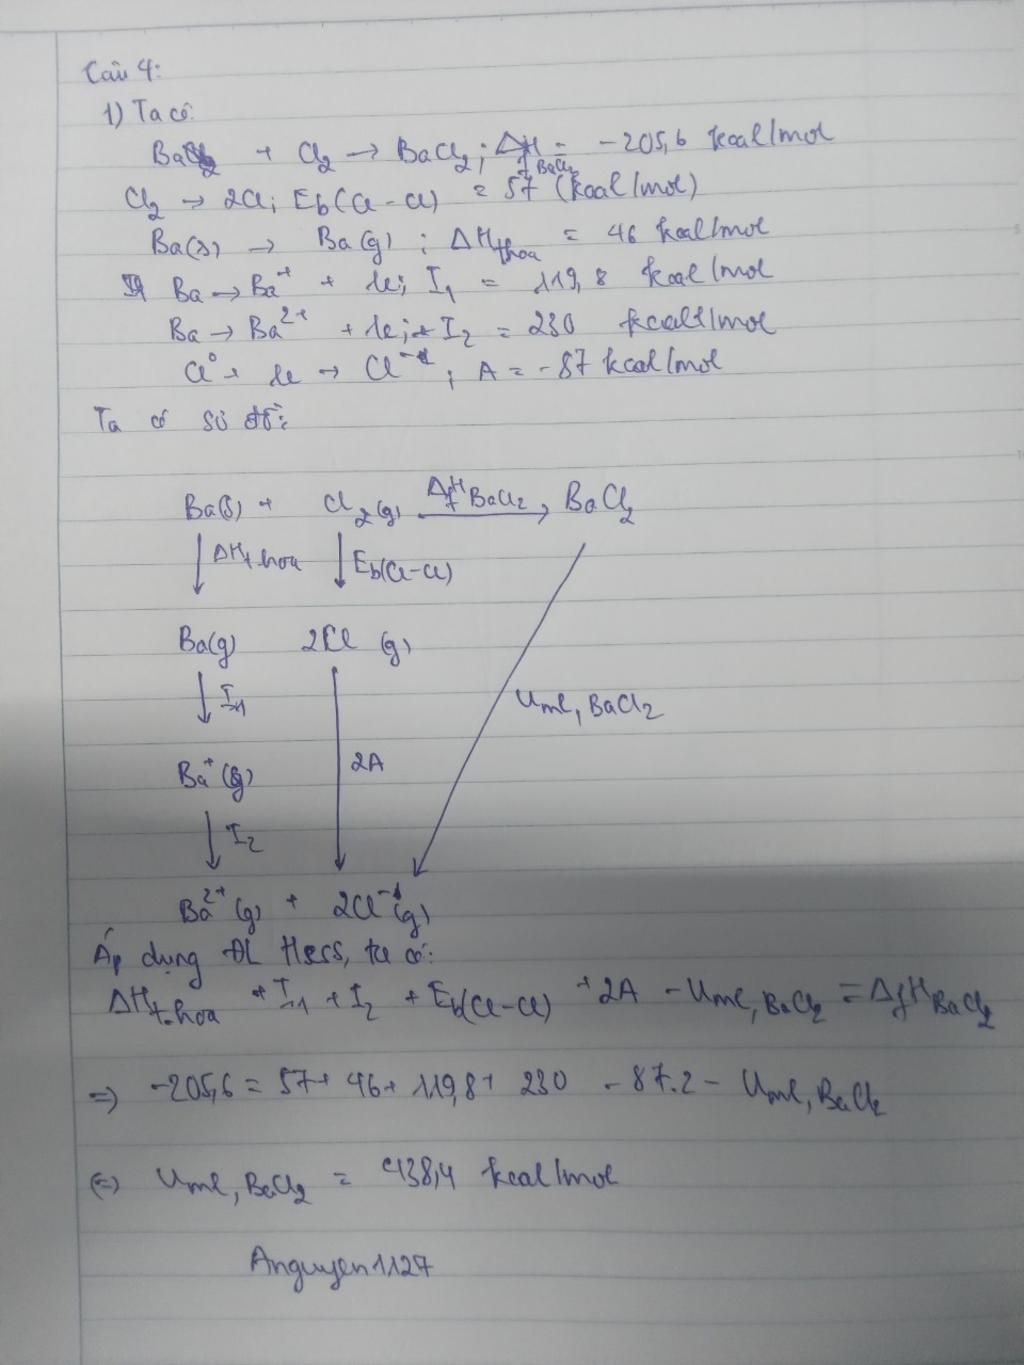 Câu 4:
1) Ta có:
Ba + Cl₂ → BaCl₂ ; ΔfH BaCl₂ = -205,6 kcal/mol
Cl₂ → 2Cl ; Eb(Cl-Cl) = 57 (kcal/mol)
Ba(s) → Ba(g) ; ΔH t.hoa = 46 kcal/mol
Ba → Ba⁺ + 1e ; I₁ = 119,8 kcal/mol
Ba → Ba²⁺ + 1e ; I₂ = 230 kcal/mol
Cl⁰ + 1e → Cl⁻¹ ; A = -87 kcal/mol
Ta có sơ đồ:
Ba(s) + Cl₂(g) ΔfH BaCl₂ → BaCl₂
↓ ΔH t.hoa ↓ Eb(Cl-Cl)
Ba(g) 2Cl (g)
↓ I₁ Uml, BaCl₂
Ba⁺(g) 2A
↓ I₂
Ba²⁺(g) + 2Cl⁻¹(g)
Áp dụng ĐL Hess, ta có:
ΔH t.hoa + I₁ + I₂ + Eb(Cl-Cl) + 2A - Uml, BaCl₂ = ΔfH BaCl₂
⇒ -205,6 = 57 + 46 + 119,8 + 230 - 87.2 - Uml, BaCl₂
⇔ Uml, BaCl₂ = 438,4 kcal/mol
Anguyen1127